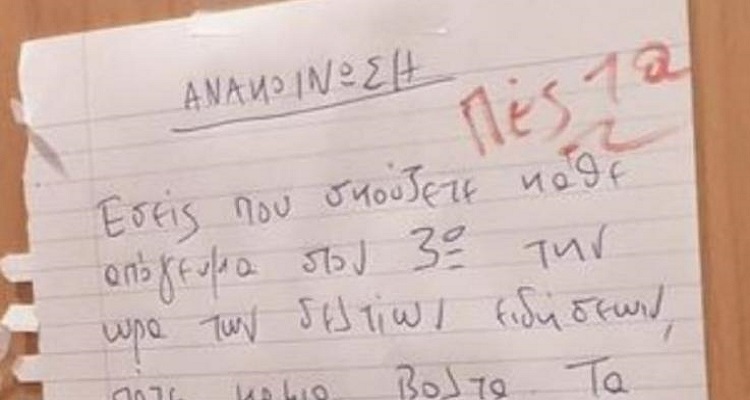 ΑΝΑΚΟΙΝΩΣΗ
Πές τα
Εσείς που σκούζετε κάθε
απόγευμα στον 3º την
ώρα των δελτίων ειδήσεων,
πάτε καμια βολτα. Τα